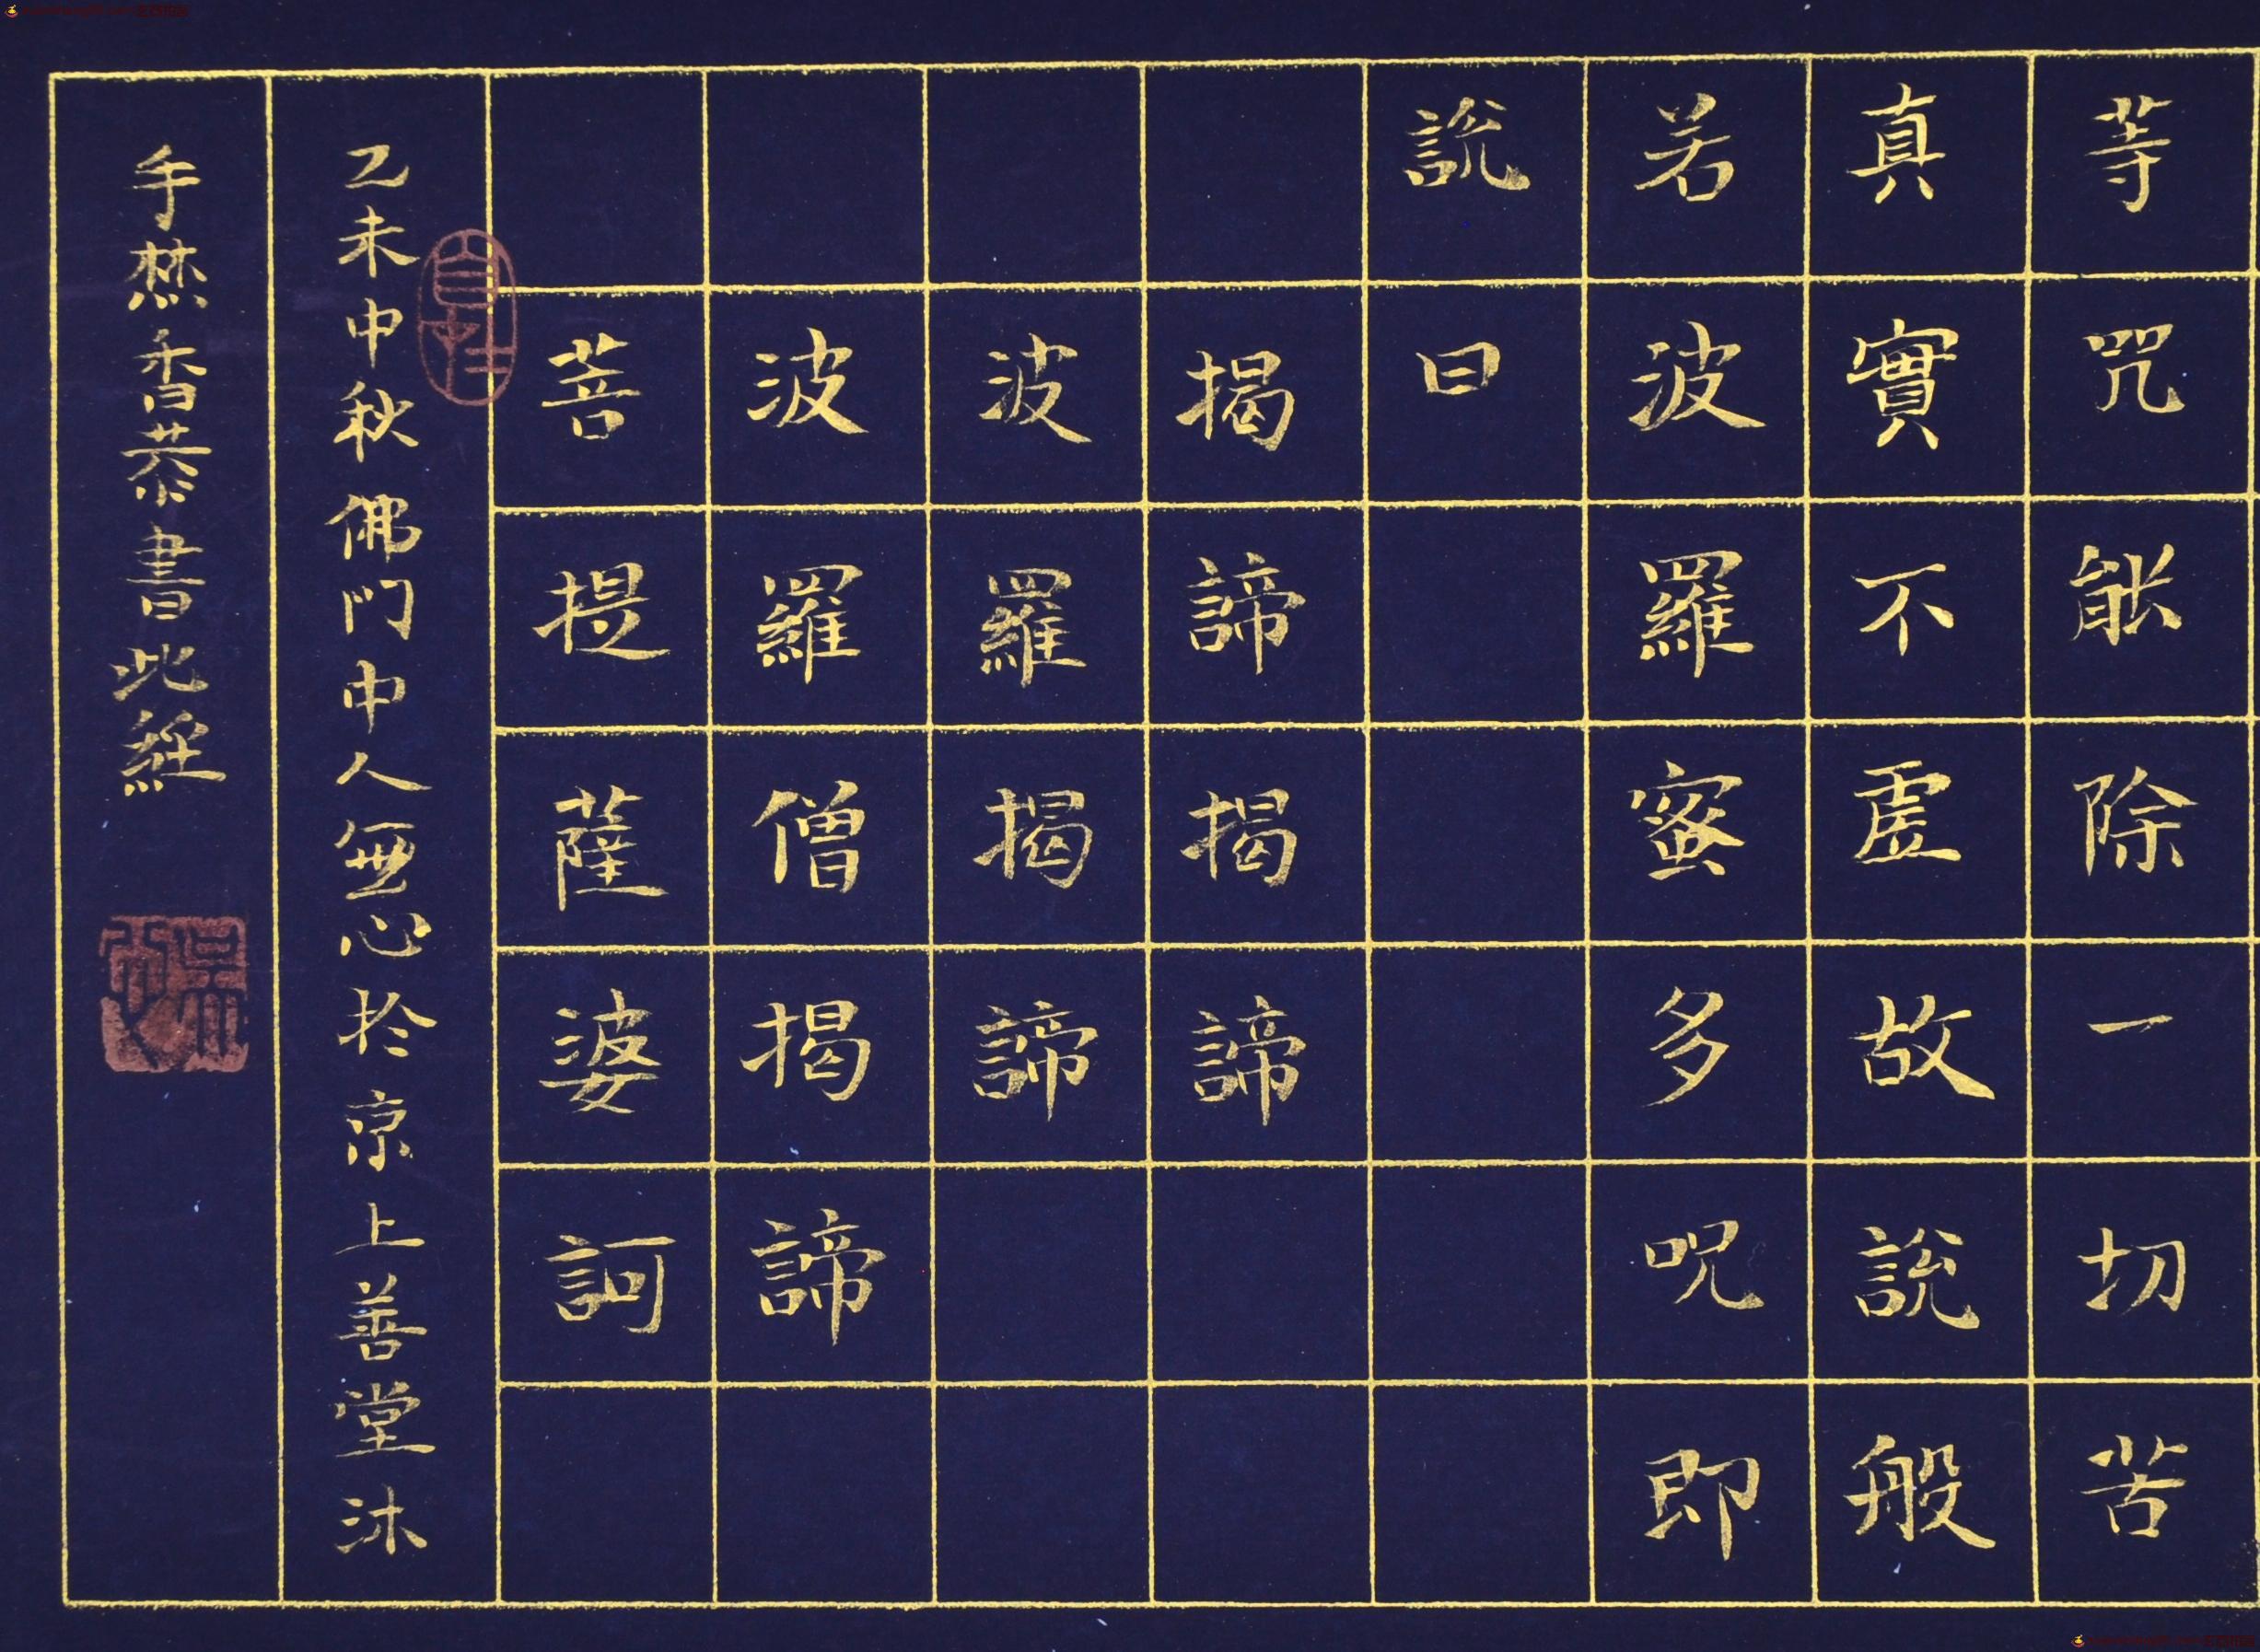 等咒能除一切苦
真實不虛故說般
若波羅蜜多呪即
說曰
揭諦揭諦
波羅揭諦
波羅僧揭諦
菩提薩婆訶
乙未中秋佛門中人無心於京上善堂沐
手焚香恭書此經
自在